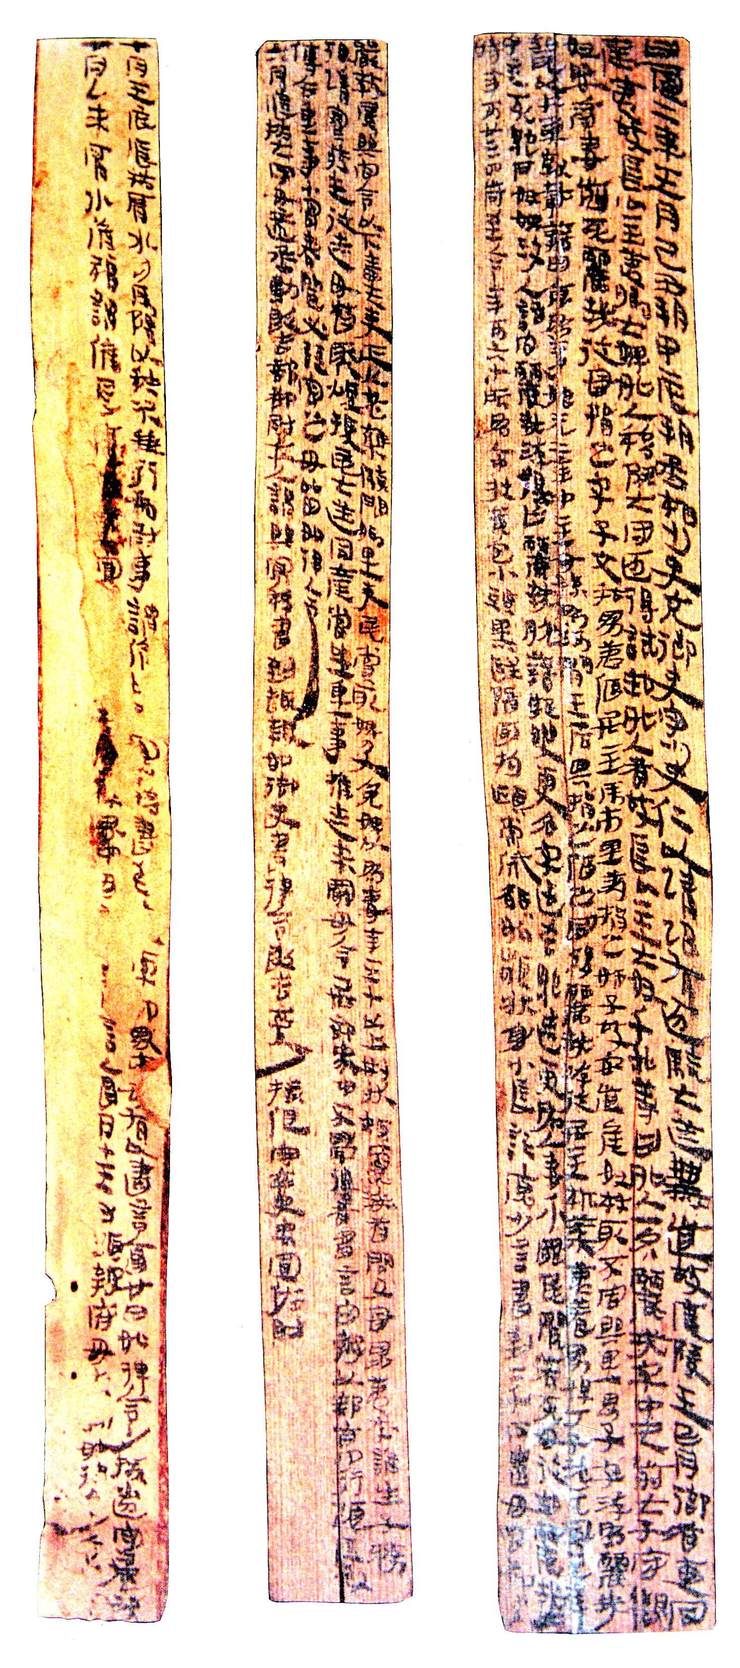 甘露二年五月己丑朔甲辰朔丞相少史充御史守少史仁以請詔有逐驗大逆無道故廣陵王胥御者惠同
產弟故長公主弟卿大婢外人移郡大守逐得試知外人者故長公主大奴千等曰外人一名麗戎字中夫前大子守觀
奴嬰齊妻前死麗戎從母捐之字子文私男弟偃居主馬市里弟捐之姊子故安道侯奴材取不審縣里男子字游為麗戎
聟以牛車就載藉田倉為事始元二年中主女孫為河間王后與捐之偕之國後麗戎游從居主枊葉弟養男孫丁子沱元鳳元年
中主死絕戶奴婢沒入詣官麗戎游俱亡麗戎脫籍疑變更名字遠走絕迹更為人妻介罪民間若死毋從知麗戎此
時年可廿三四歲至今年可六十所為人中壯黃色小頭黑髮隋面拘頤常戚額如頻狀身小長詫廋少言書到二千石遣毋害都吏
嚴教屬縣官令以下嗇夫吏正三老雜驗問鄉里吏民賞取婢及免婢以為妻年五十以上刑狀類麗戎者問父母昆弟本誰生子務
得請實發生從迹毋督聚煩擾民大逆同產當坐重事推迹未窮毋令居部界中不覺得者書言白報以郵亭行詣長安
傳舍重事當奏聞必謹密之毋留如律令
六月張掖大守毋適丞勳敢告部都尉卒人謂縣寫移書到趣報如御史書律令敢告卒人/掾佷守卒史禹置佐財
七月壬辰張掖肩水司馬陽以秩次兼行都尉事謂候城尉寫移書到廋索界中毋有以書言會廿日如律令/掾遂守屬況
七月乙未肩水候福謂候長寫移書到界中以書言會月十五日須報府毋如律令